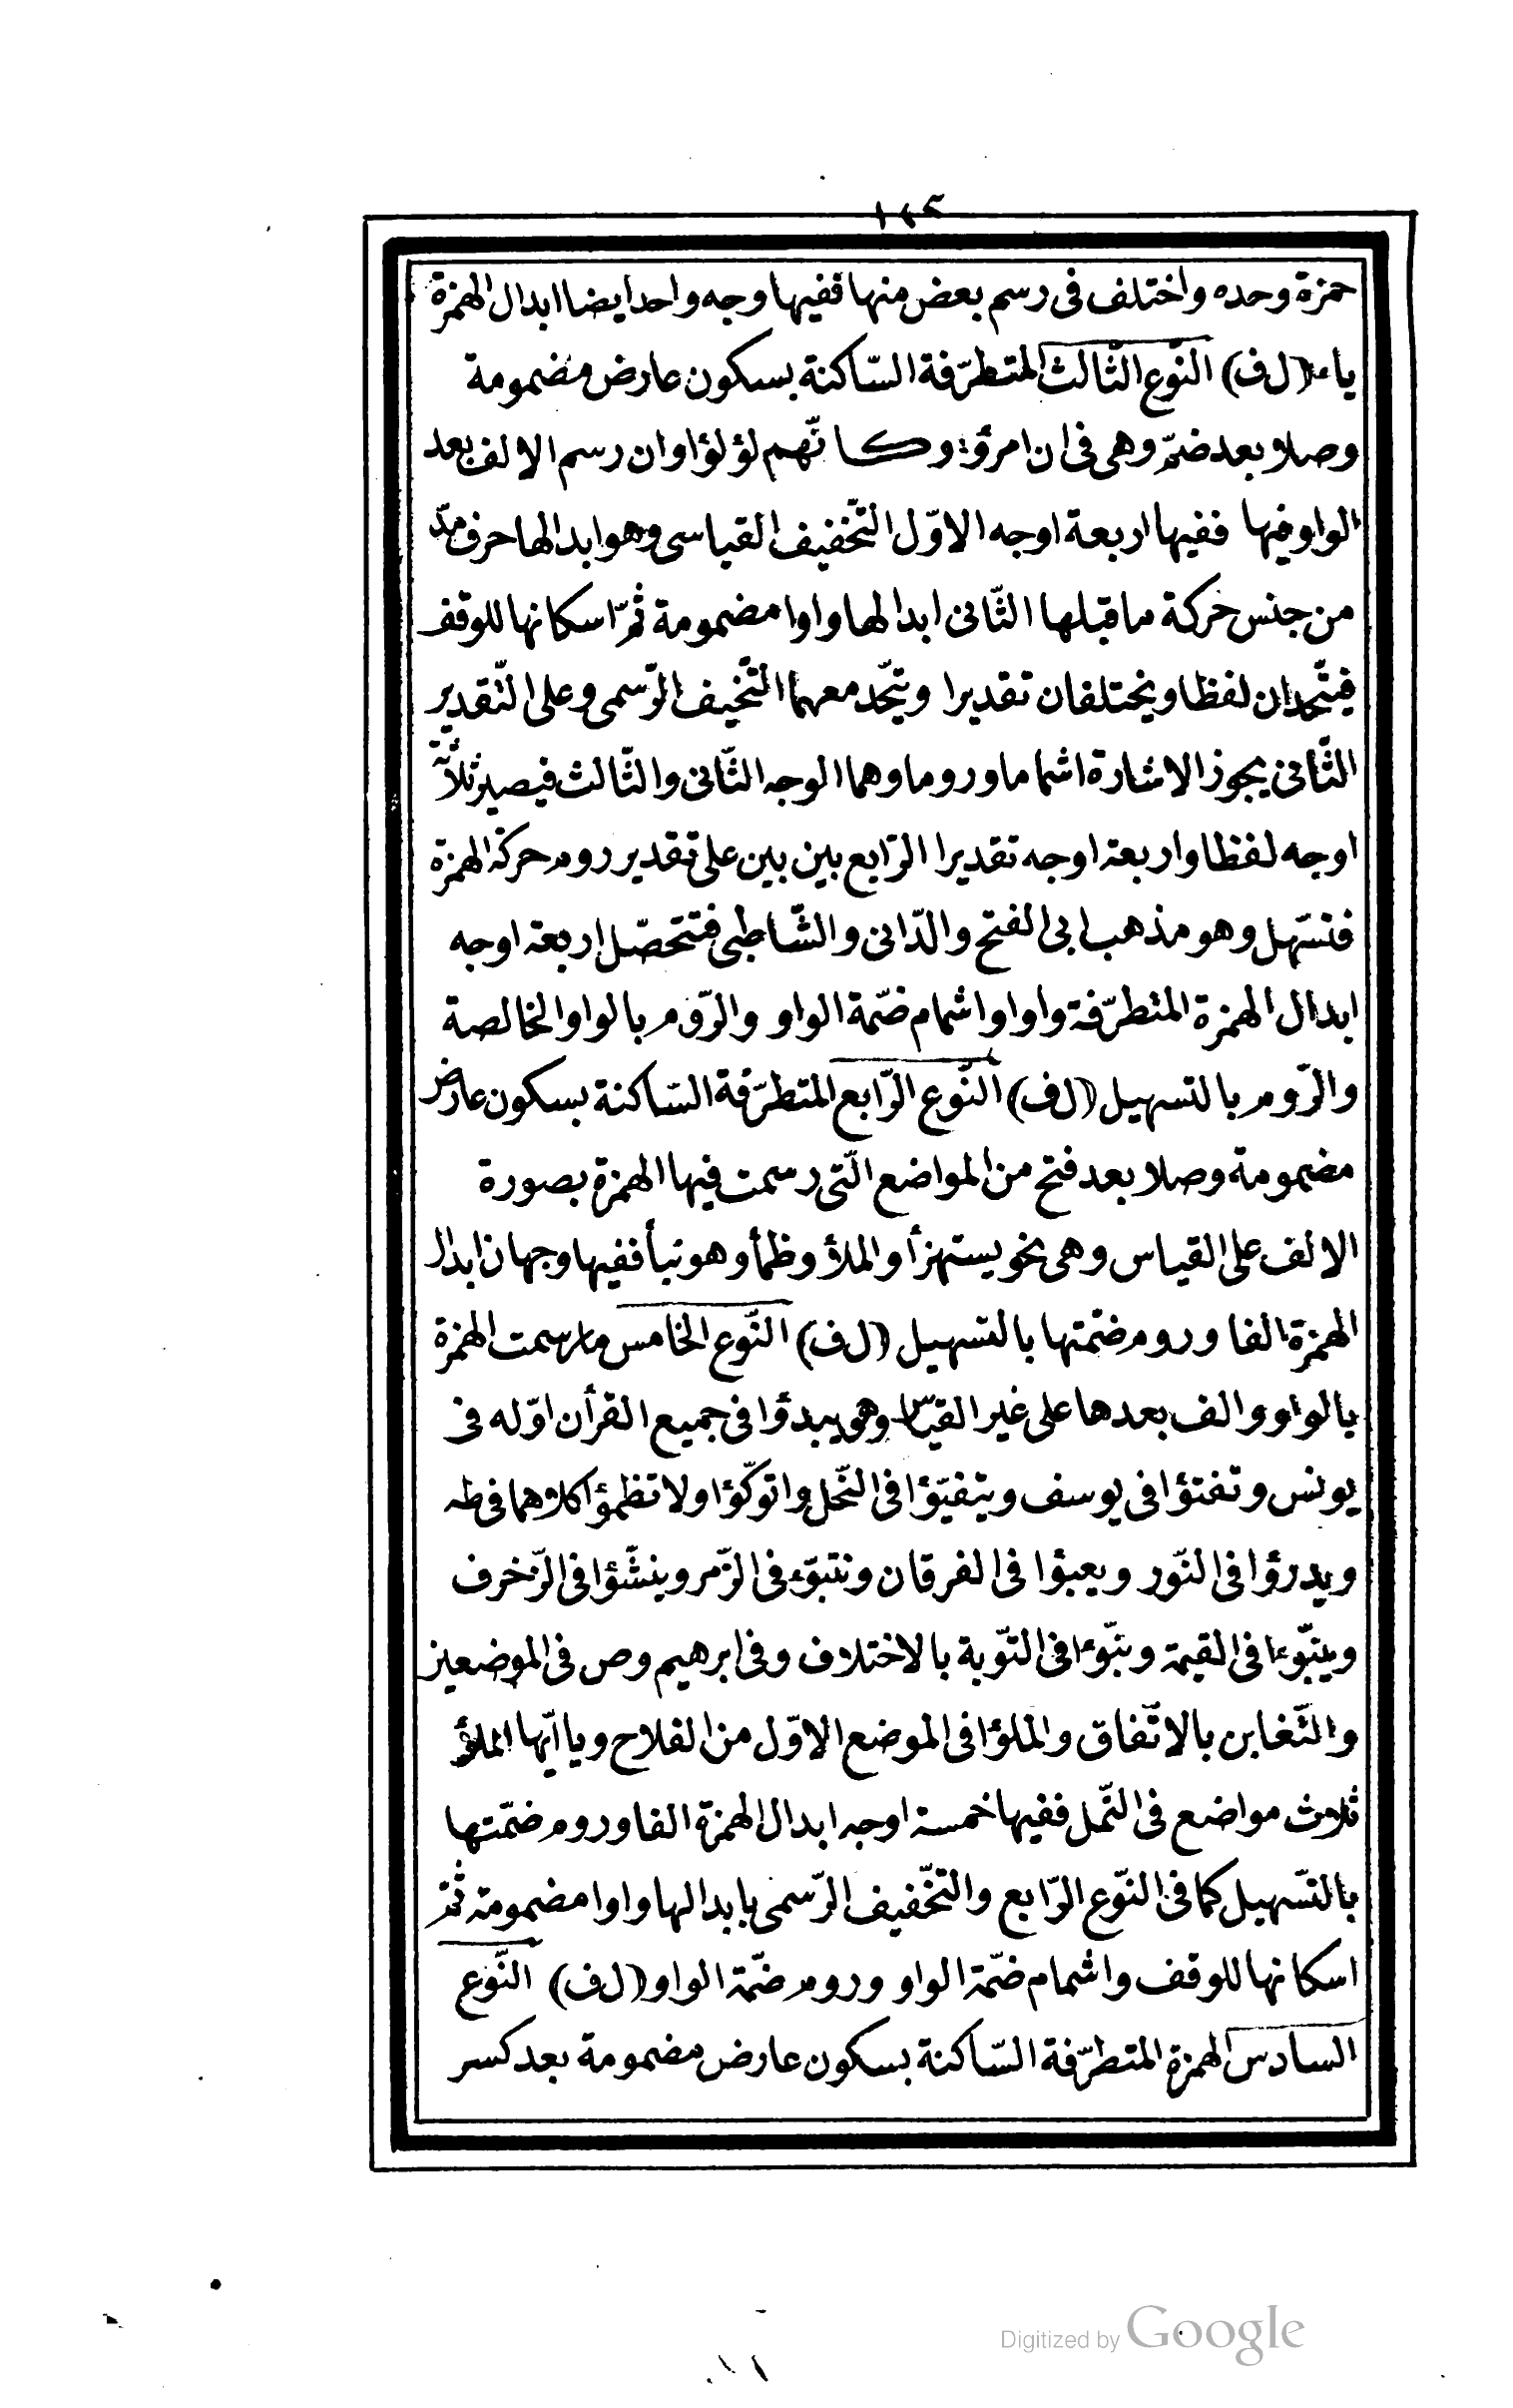 ١٤٢
حمزة وحده واختلف فى رسم بعض منها ففيها وجه واحد ايضا ابدال الهمزة
ياء (ل ف) النّوع الثّالث المتطرّفة السّاكنة بسكون عارض مضمومة
وصلا بعد ضمّ وهى فى ان امرؤ وكانّهم لؤلؤا وان رسم الالف بعد
الواو فيها ففيها اربعة اوجه الاوّل التّخفيف القياسى وهو ابدالها حرف مدّ
من جنس حركة ما قبلها الثّانى ابدالها واوا مضمومة ثمّ اسكانها للوقف
فيتّحدان لفظا ويختلفان تقديرا ويتّحد معهما التّخيف الرّسمى وعلى التّقدير
الثّانى يجوز الاشارة اشماما وروما وهما الوجه الثّانى والثّالث فيصير ثلاثة
اوجه لفظا واربعة اوجه تقديرا الرّابع بين بين على تقدير روم حركة الهمزة
فنسّهل وهو مذهب ابى الفتح والدّانى والشّاطبى فتتحصّل اربعة اوجه
ابدال الهمزة المتطرّفة واوا واشمام ضمّة الواو والرّوم بالواو الخالصة
والرّوم بالتسهيل (ل ف) النّوع الرّابع المتطرّفة السّاكنة بسكون عارض
مضمومة وصلا بعد فتح من المواضع الّتى رسمت فيها الهمزة بصورة
الالف على القياس وهى نحو يستهزأ والملؤ وظمأ وهو نبأ ففيها وجهان ابدال
الهمزة الفا وروم ضمّتها بالتسهيل (ل ف) النّوع الخامس ما رسمت الهمزة
بالواو والف بعدها على غير القياس وهو يبدؤا فى جميع القرأن اوّله فى
يونس وتفتؤا فى يوسف ويتفيّؤا فى النّحل واتوكّؤا ولا تظمؤا كلاهما فى طه
ويدرؤا فى النّور ويعبؤا فى الفرقان ونتبوّء فى الزّمر وينشّؤا فى الزّخرف
وينبّوءا فى القيمة ونبّوءا فى التّوبة بالاختلاف وفى ابرهيم وص فى الموضعين
والتّغابن بالاتّفاق والملؤا فى الموضع الاوّل من الفلاح ويا ايّها الملؤ
ثلاث مواضع فى النّمل ففيها خمسة اوجه ابدال الهمزة الفا وروم ضمّتها
بالتّسهيل كما فى النّوع الرّابع والتّخفيف الرّسمى بابدالها واوا مضمومة ثمّ
اسكانها للوقف واشمام ضمّة الواو وروم ضمّة الواو (ل ف) النّوع
السادس الهمزة المتطرّفة السّاكنة بسكون عارض مضمومة بعد كسر
Digitized by Google